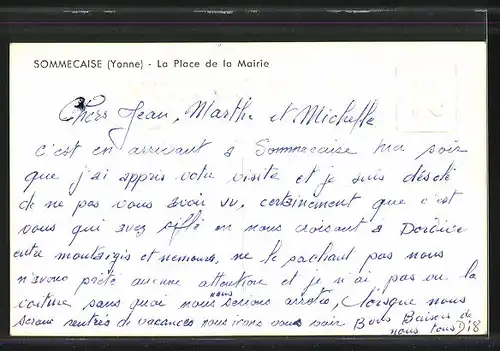 SOMMECAISE (Yonne) - La Place de la Mairie
Chers Jean, Marthe et Michelle
c'est en arrivant à Sommecaise hier soir
que j'ai appris votre visite et je suis désolé
de ne pas vous avoir vu, certainement que c'est
vous qui avez sifflé en nous croisant à Dordives
entre montargis et nemours, ne le sachant pas nous
n'avons prêté aucune attention et je n'ai pas vu la
voiture sans quoi nous nous serions arrêtés, lorsque nous
serons rentrés de vacances nous irons vous voir Bons Baisers de
nous tous